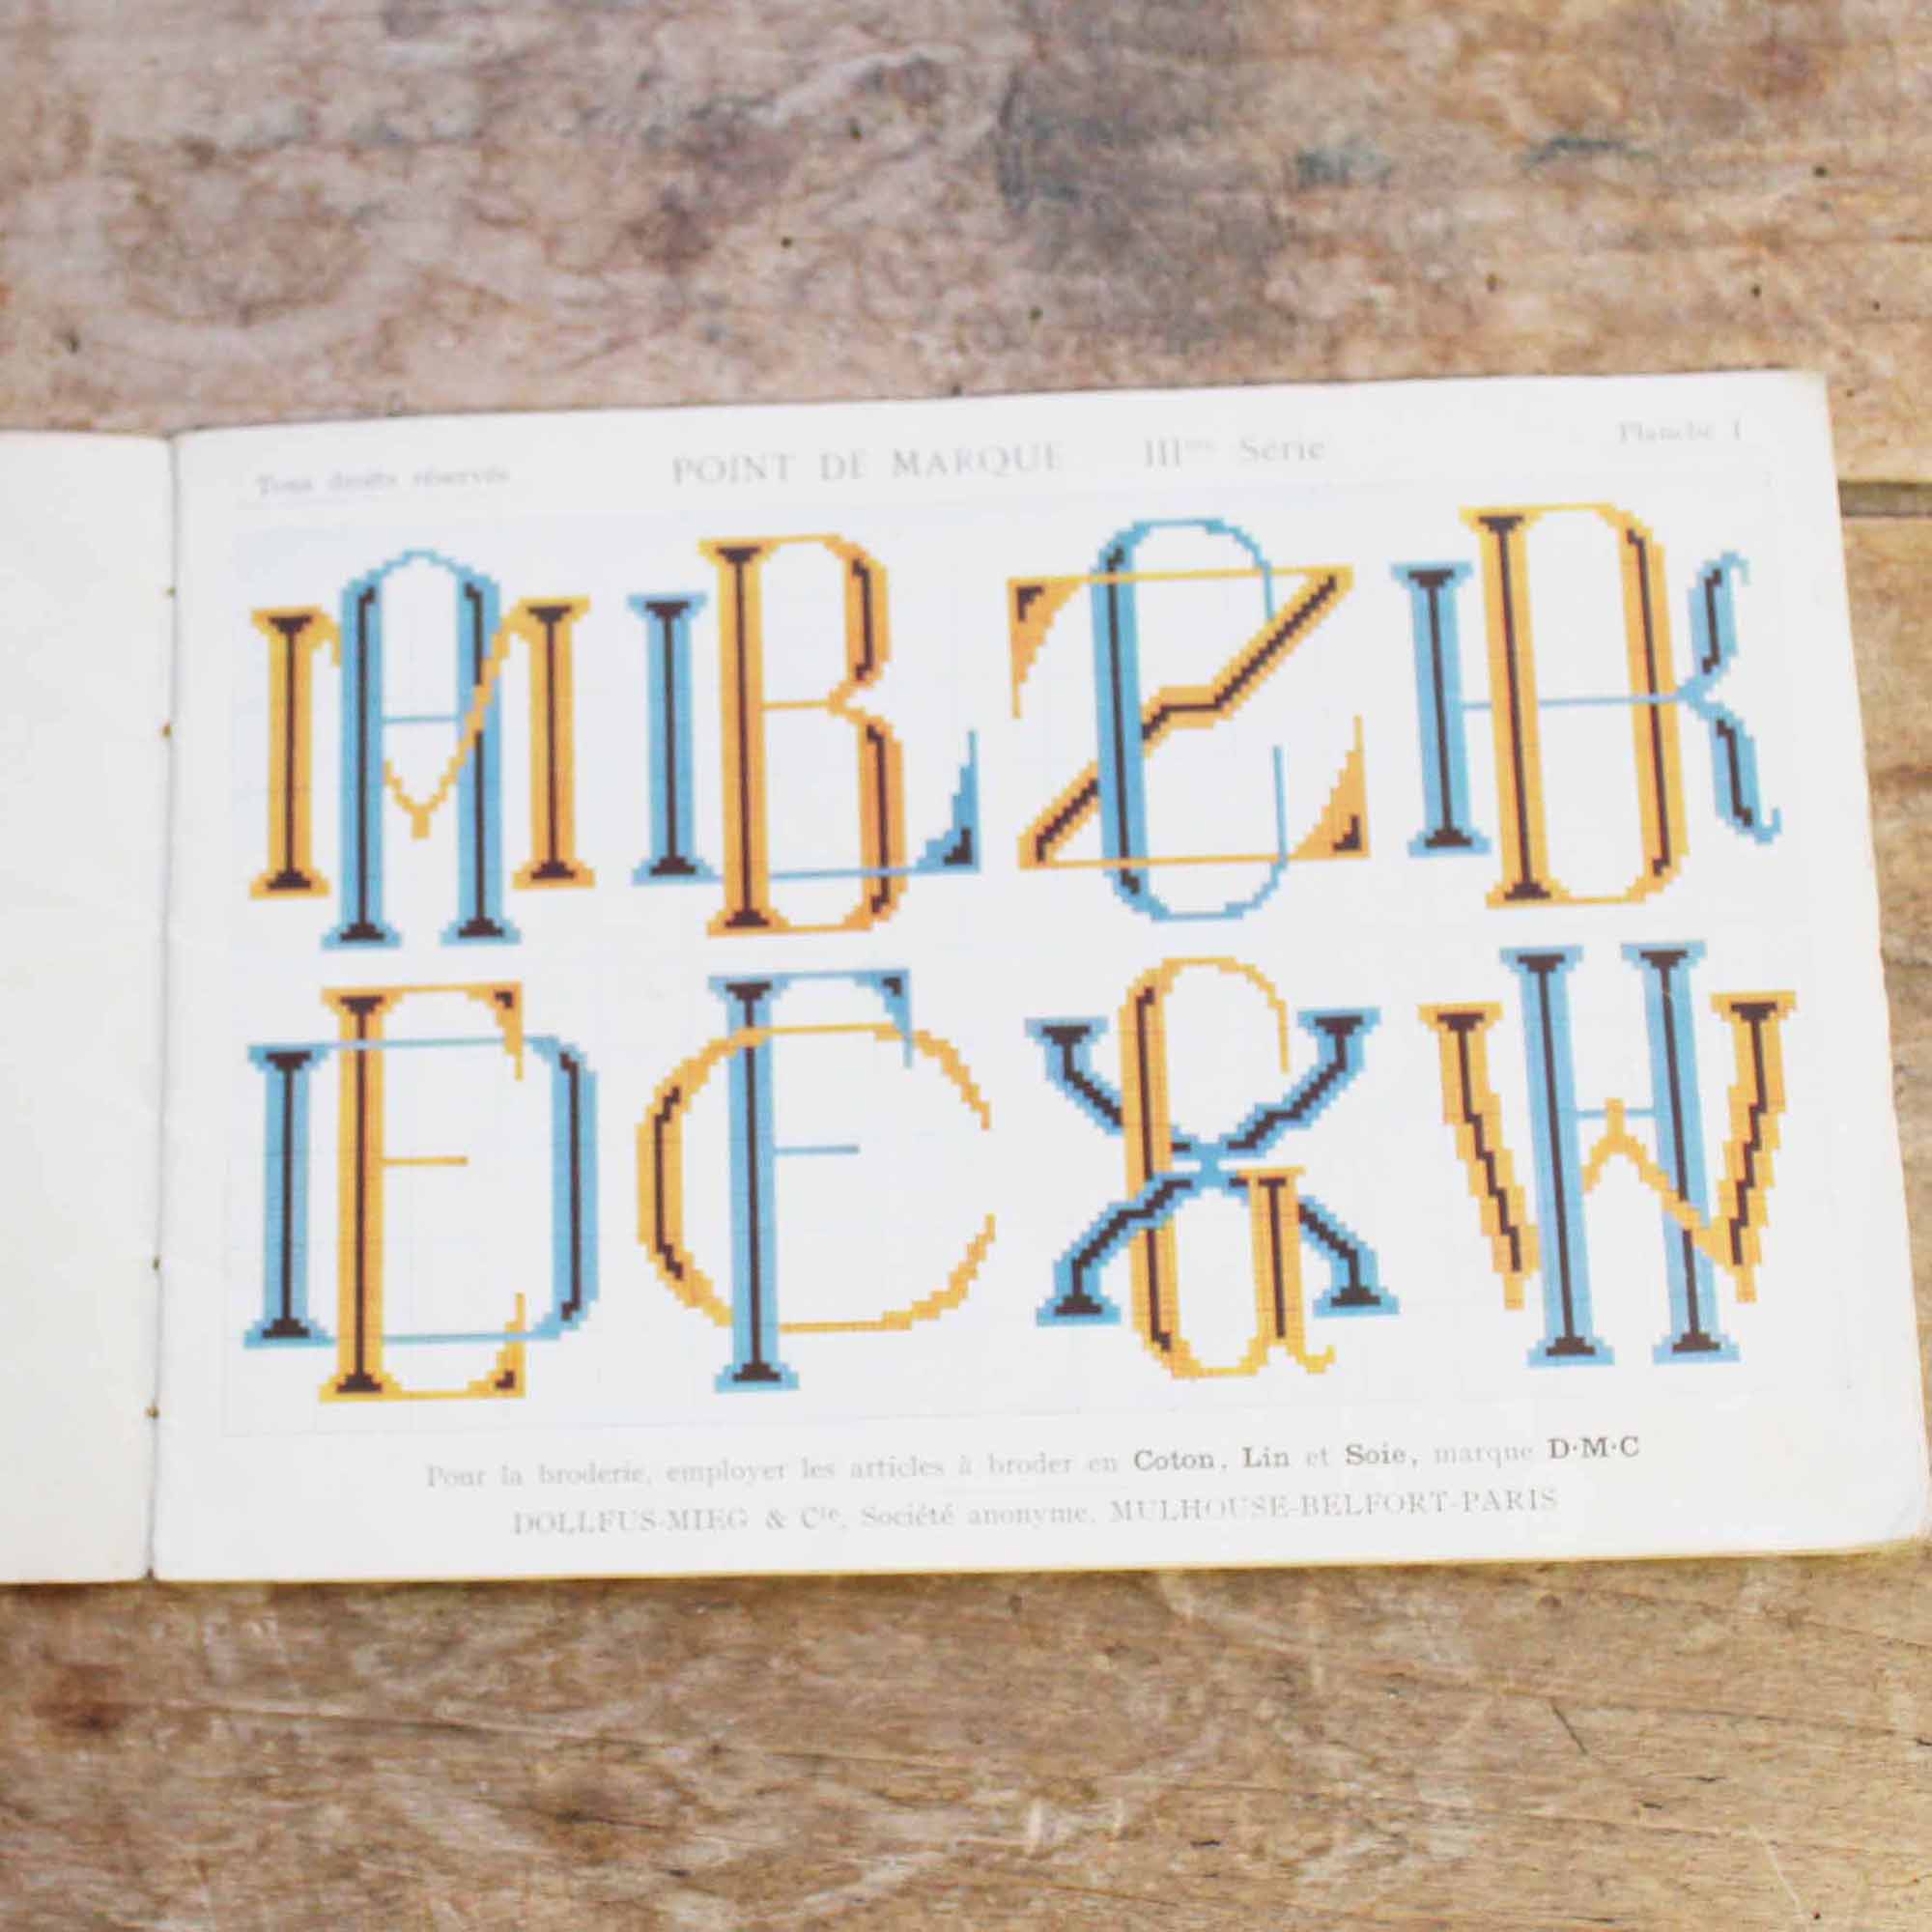 Tous droits réservés
POINT DE MARQUE IIIme Série
Planche I
MA LB ZC KD
DE CF XG WH
Pour la broderie, employer les articles à broder en Coton, Lin et Soie, marque D·M·C
DOLLFUS-MIEG & Cie, Société anonyme, MULHOUSE-BELFORT-PARIS